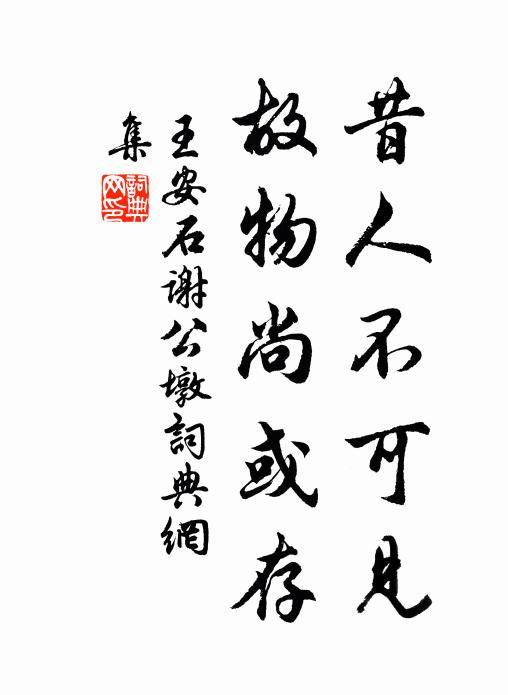 昔人不可見
故物尚或存
王安石謝公墩詞典網
集
詞典
网印